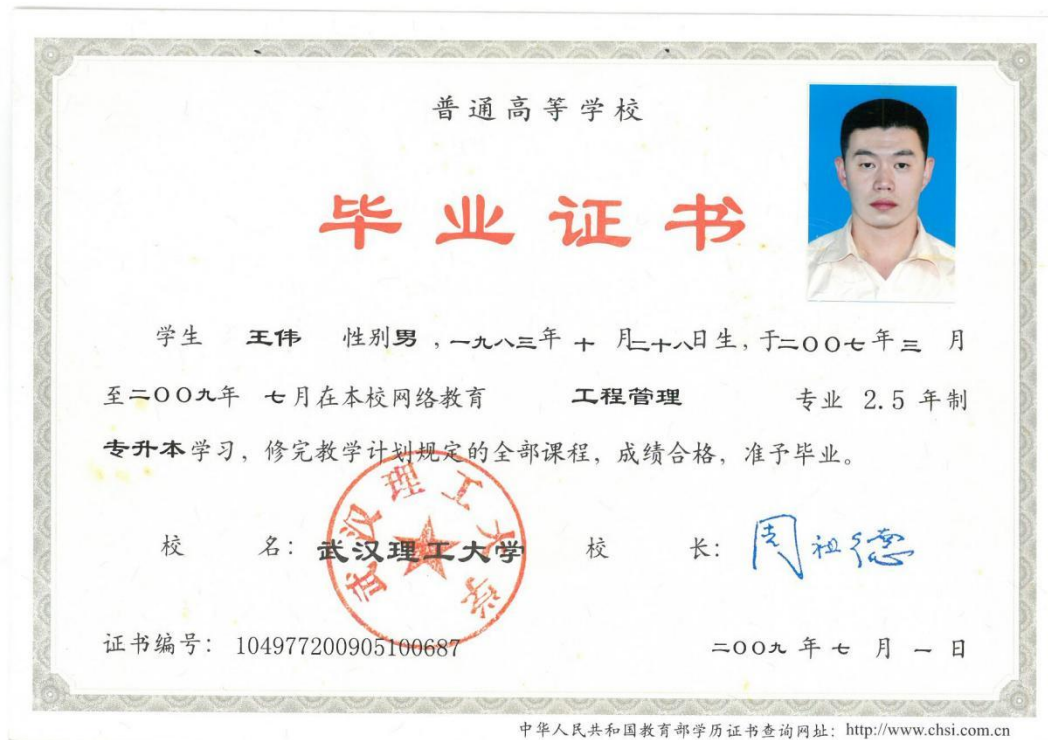 普通高等学校
毕业证书
学生 王伟 性别男，一九八三年 十 月二十八日生，于二00七年 三 月
至二00九年 七月在本校网络教育 工程管理 专业 2.5 年制
专升本学习，修完教学计划规定的全部课程，成绩合格，准予毕业。
校 名：武汉理工大学 校 长：周祖德
武汉理工大学
证书编号：104977200905100687 二00九 年 七 月 一 日
中华人民共和国教育部学历证书查询网址：http://www.chsi.com.cn